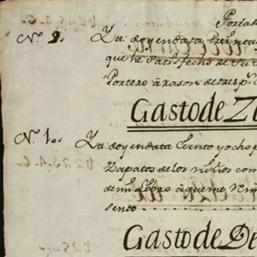 Portad
Nº. 9. Yt. doy en data treinta
que he satisfecho
Portero à razon de tres p.
Gasto de Z
Nº. 1. Yt. doy en data Ciento y ocho p
Zapatos de los niños com
de mi Libro à que me
sento
Gasto de De